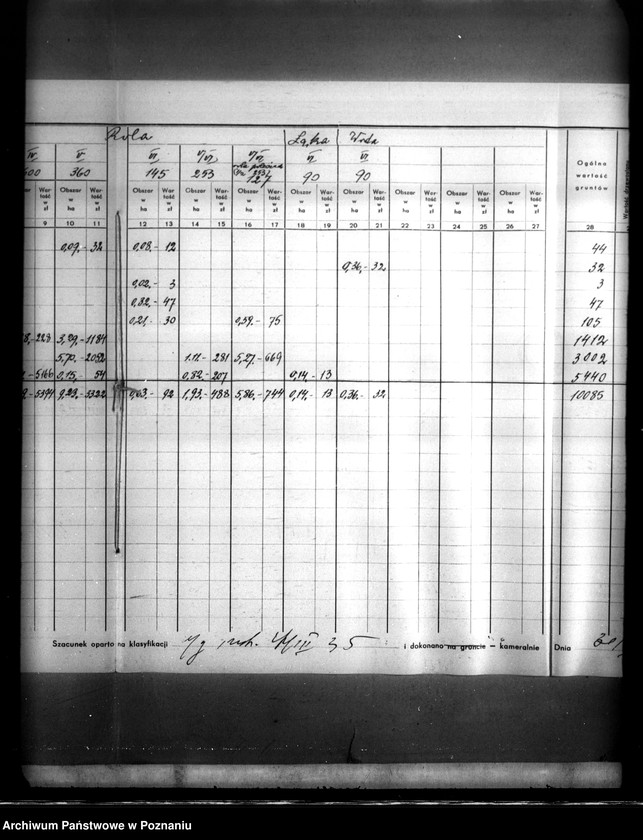 Rola Łąka Woda
IV V VI V/VI V/VI VI VI Ogólna
500 360 145 253 127 90 90 wartość
gruntów
Obszar w ha Wartość w zł Obszar w ha Wartość w zł Obszar w ha Wartość w zł Obszar w ha Wartość w zł Obszar w ha Wartość w zł Obszar w ha Wartość w zł Obszar w ha Wartość w zł Obszar w ha Wartość w zł Obszar w ha Wartość w zł
9 10 11 12 13 14 15 16 17 18 19 20 21 22 23 24 25 26 27 28
0,09,- 32 0,08,- 12 44
0,36,- 32 32
0,02,- 3 3
0,32,- 47 47
0,21,- 30 0,59,- 75 105
-228 3,29,- 1184 1412
5,70,- 2052 1.11,- 281 5,27,- 669 3002
-5166 0,15,- 54 0,82,- 207 0,14,- 13 5440
-5394 9,23,- 3322 0,63,- 92 1,93,- 488 5,86,- 744 0,14,- 13 0,36,- 32 10085
Szacunek oparto na klasyfikacji i dokonano na gruncie – kameralnie Dnia
Archiwum Państwowe w Poznaniu